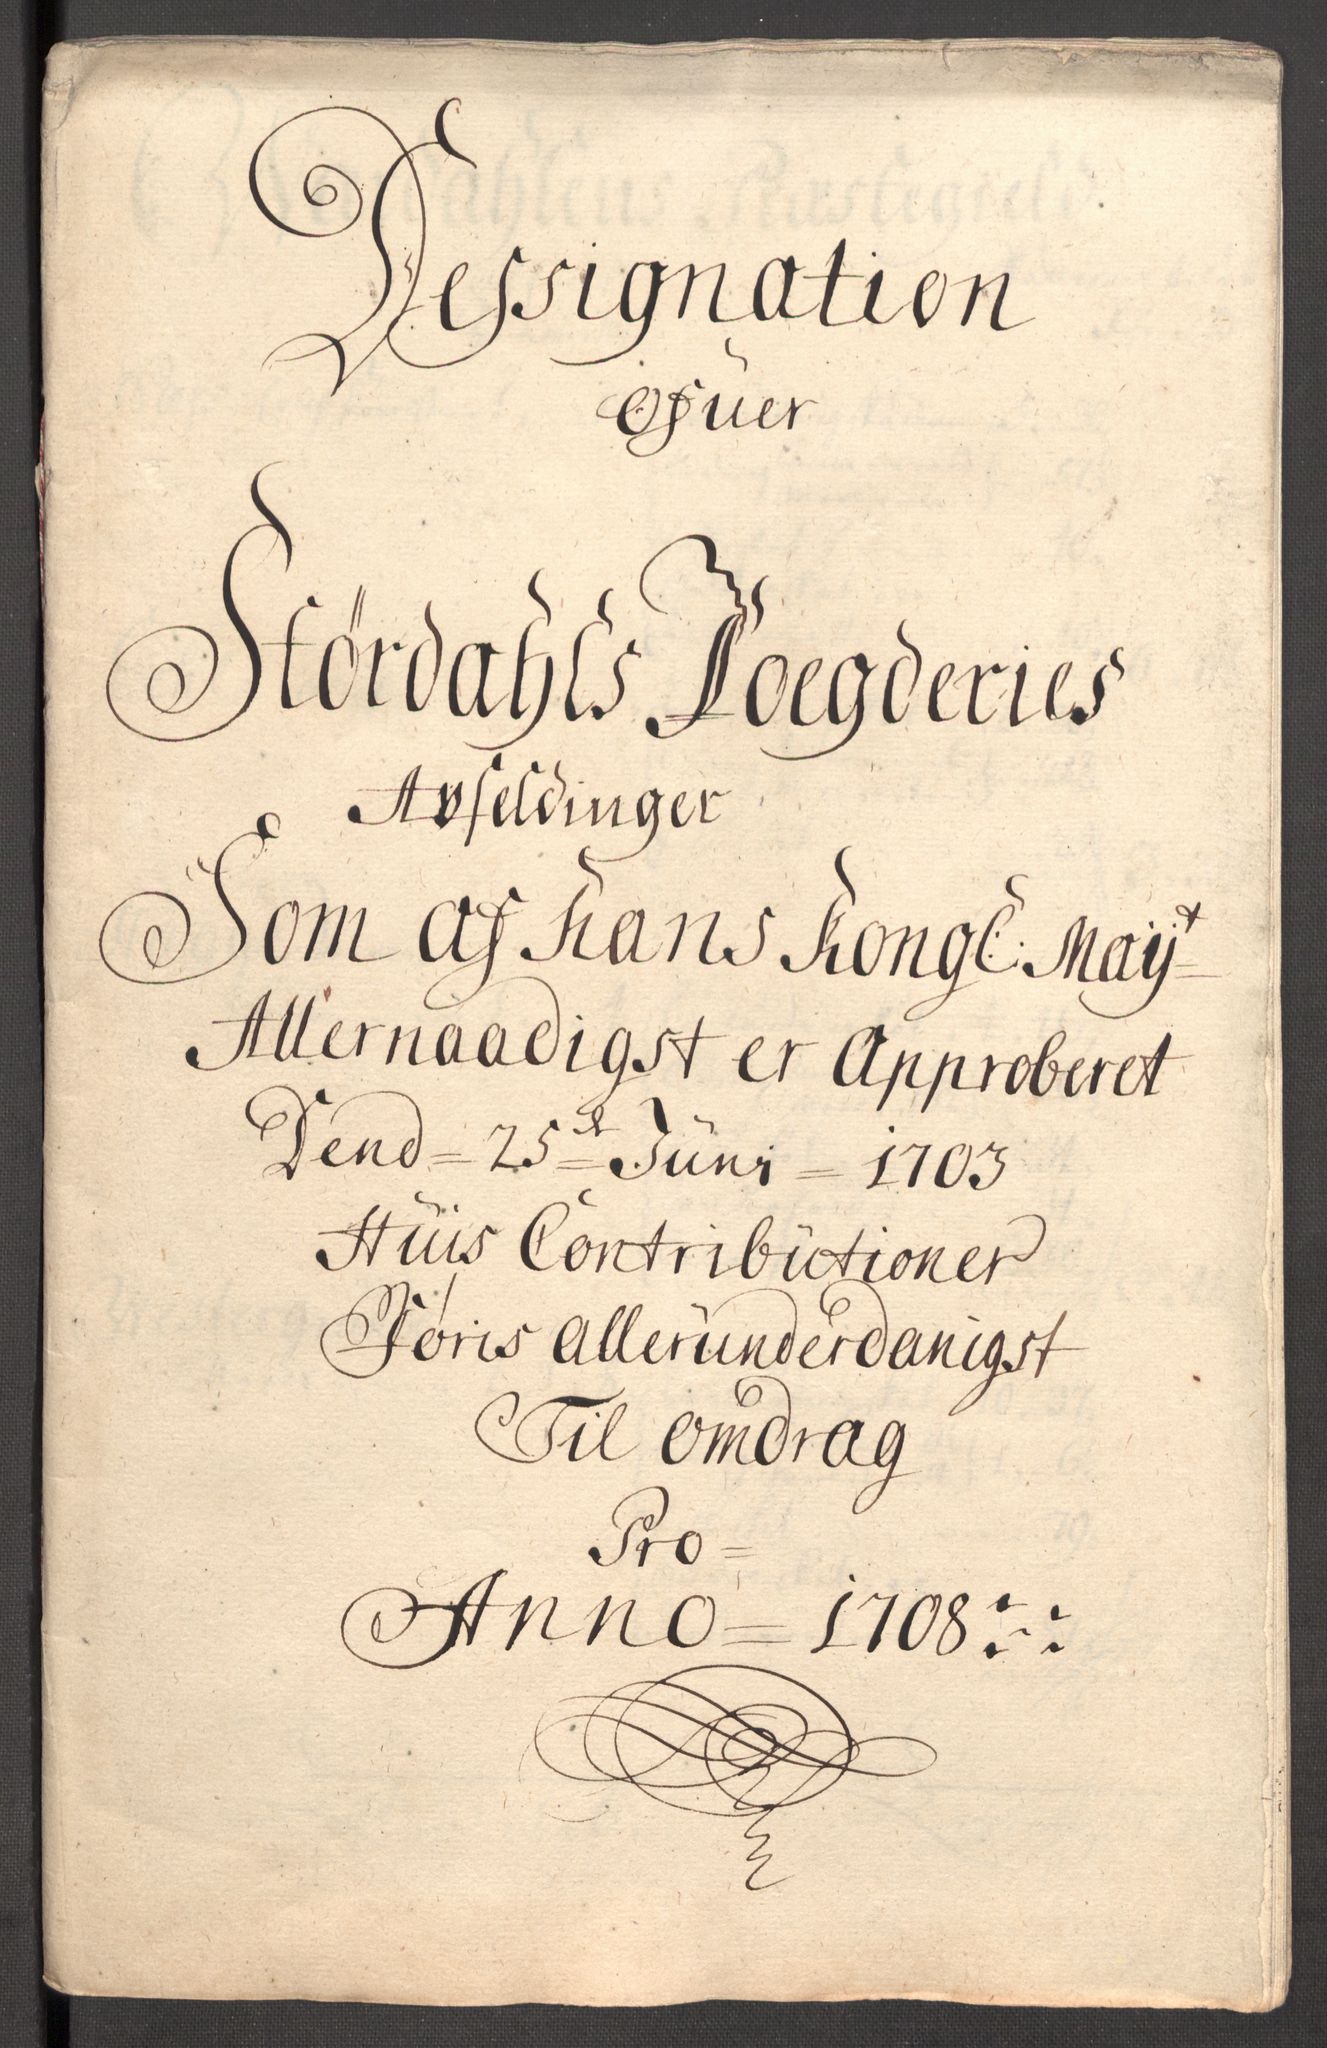 Dessignation
Ofuer
Størdahls Foegderies
Aufeldinger
Som af hans Kongl: Maÿt
Allernaadigst er Approberet
Dend = 25de Juni = 1703
Huis Contributioner
Føris allerunderdanigst
Til omdrag
Pro =
Anno = 1708